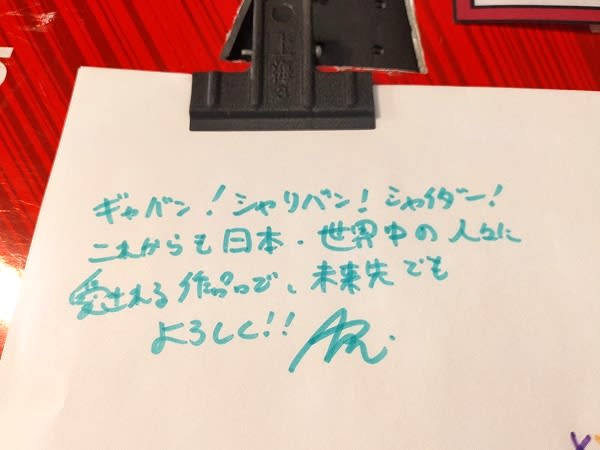 ギャバン!シャリバン!シャイダー!
これからも日本・世界中の人々に
愛される作品で、未来先でも
よろしく!!